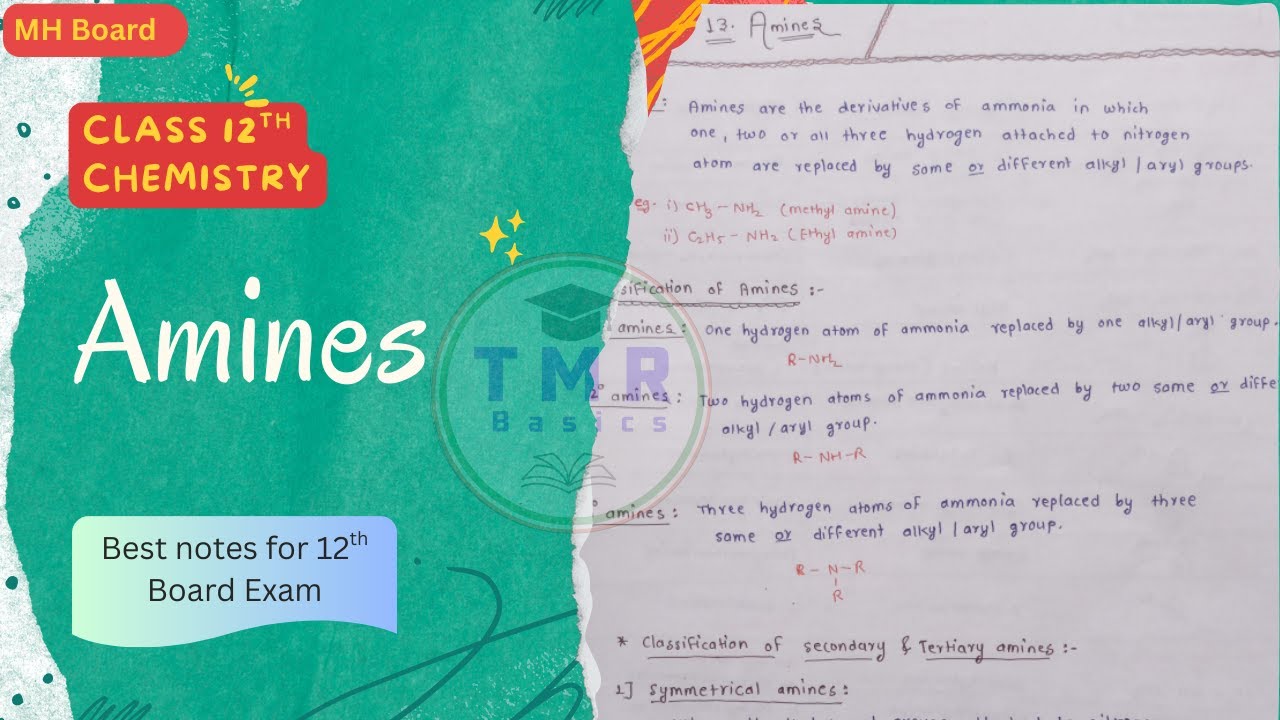 MH Board
CLASS 12TH
CHEMISTRY
Amines
Best notes for 12th
Board Exam
TMR
Basics
13. Amines
Amines are the derivatives of ammonia in which
one, two or all three hydrogen attached to nitrogen
atom are replaced by same or different alkyl / aryl groups.
eg. i) CH3 – NH2 (methyl amine)
ii) C2H5 – NH2 (Ethyl amine)
sification of Amines :-
amines : One hydrogen atom of ammonia replaced by one alkyl/aryl group.
R–NH2
2° amines : Two hydrogen atoms of ammonia replaced by two same or diffe
alkyl / aryl group.
R– NH –R
° amines : Three hydrogen atoms of ammonia replaced by three
same or different alkyl / aryl group.
R – N – R
R
* Classification of secondary & Tertiary amines :-
1] Symmetrical amines :